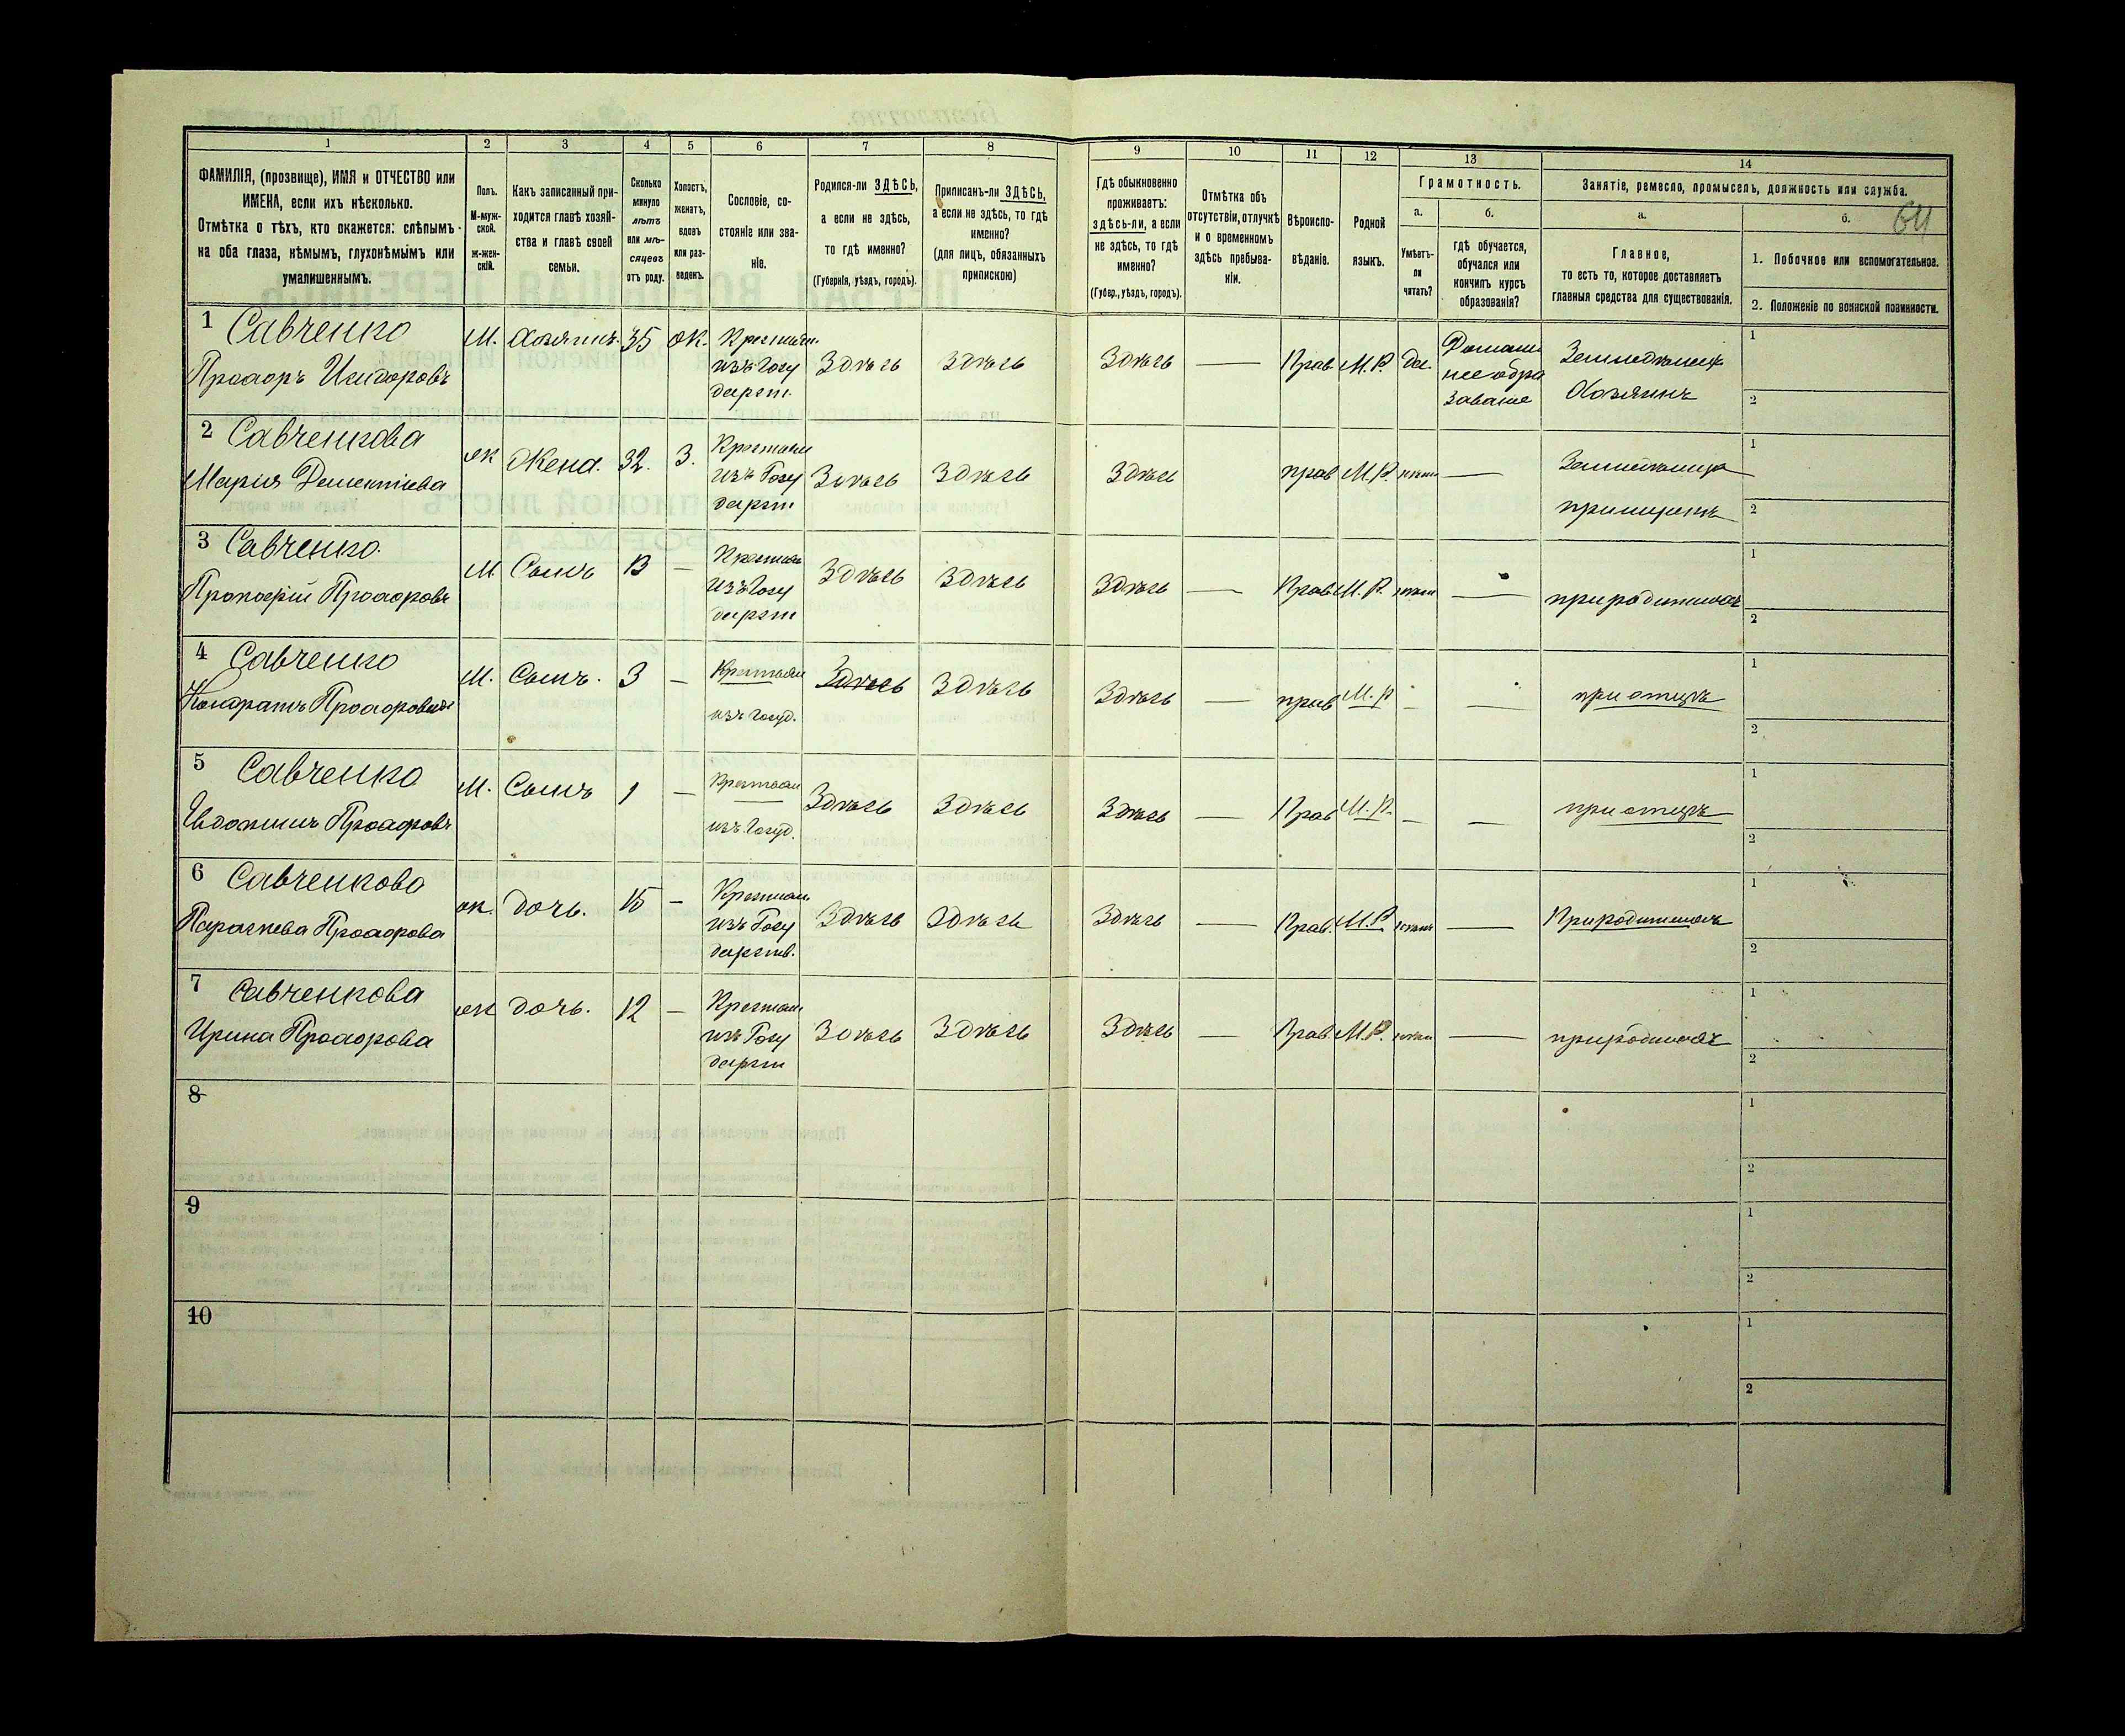 1 2 3 4 5 6 7 8 9 10 11 12 13 14
ФАМИЛІЯ, (прозвище), ИМЯ и ОТЧЕСТВО или
ИМЕНА, если ихъ нѣсколько.
Отмѣтка о тѣхъ, кто окажется: слѣпымъ
на оба глаза, нѣмымъ, глухонѣмымъ или
умалишеннымъ.
Полъ.
М-муж-
ской.
ж-жен-
скій.
Какъ записанный при-
ходится главѣ хозяй-
ства и главѣ своей
семьи.
Сколько
минуло
лѣтъ
или мѣ-
сяцевъ
отъ роду.
Холостъ,
женатъ,
вдовъ
или раз-
веденъ.
Сословіе, со-
стояніе или зва-
ніе.
Родился-ли ЗДѢСЬ,
а если не здѣсь,
то гдѣ именно?
(Губернія, уѣздъ, городъ).
Приписанъ-ли ЗДѢСЬ,
а если не здѣсь, то гдѣ
именно?
(для лицъ, обязанныхъ
припискою)
Гдѣ обыкновенно
проживаетъ:
здѣсь-ли, а если
не здѣсь, то гдѣ
именно?
(Губер., уѣздъ, городъ).
Отмѣтка объ
отсутствіи, отлучкѣ
и о временномъ
здѣсь пребыва-
ніи.
Вѣроиспо-
вѣданіе.
Родной
языкъ.
Грамотность.
а.
Умѣетъ-
ли
читать?
б.
гдѣ обучается,
обучался или
кончилъ курсъ
образованія?
Занятіе, ремесло, промыселъ, должность или служба.
а.
Главное,
то есть то, которое доставляетъ
главныя средства для существованія.
б.
64
1. Побочное или вспомогательное.
2. Положеніе по воинской повинности.
1 Савченко
Прохоръ Исидоровъ
М. Хозяинъ. 35 ж.
Крестьян.
изъ Госу
дарст.
Здѣсь Здѣсь Здѣсь — Прав. М.Р. Да.
Домаш
нее обра
зование
Земледѣлецъ
Хозяинъ
1
2
2 Савченкова
Мария Дементіева
ж Жена. 32. З.
Крестьян
изъ Госу
дарст
Здѣсь Здѣсь Здѣсь прав. М.Р. —
1
2
3 Савченко.
Прокофій Прохоровъ
М Сынъ 13 —
Крестьян
изъ Госу
дарст
Здѣсь Здѣсь Здѣсь — Прав. М.Р. —
1
2
4 Савченко
Кондратъ Прохоровъ
М. Сынъ. 3 —
Крестьян
изъ Госуд.
Здѣсь Здѣсь Здѣсь — прав М.Р — —
при отцѣ
1
2
5 Савченко
Прохоровъ
М. Сынъ 1 —
Крестьян
изъ Госуд.
Здѣсь Здѣсь Здѣсь — Прав М.Р. — —
при отцѣ
1
2
6 Савченкова
Прохорова
ж. дочь. 15 —
Крестьян
изъ Госу
дарств.
Здѣсь Здѣсь Здѣсь — Прав. М.Р —
1
2
7 Савченкова
Ирина Прохорова
ж дочь. 12 —
Крестьян
изъ Госу
дарст
Здѣсь Здѣсь Здѣсь — Прав. М.Р. —
1
2
8
1
2
9
1
2
10
1
2